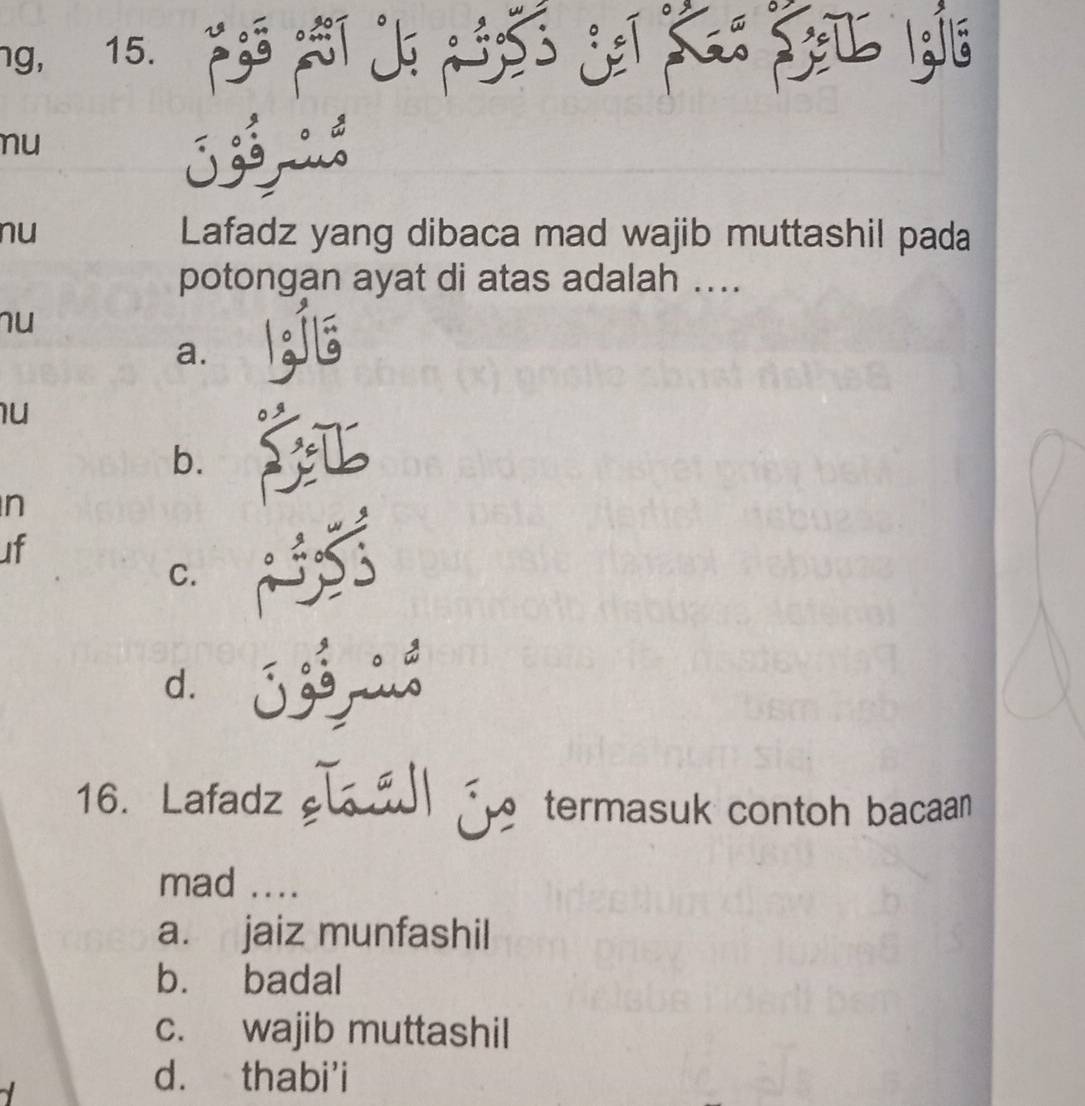 ng, 15. قَالُوْا طَاۤىِٕرُكُمْ مَّعَكُمْ اَىِٕنْ ذُكِّرْتُمْ بَلْ اَنْتُمْ قَوْمٌ
mu مُّسْرِفُوْنَ
nu Lafadz yang dibaca mad wajib muttashil pada
potongan ayat di atas adalah ....
nu
a. قَالُوْا
nu
b. طَاۤىِٕرُكُمْ
an
uf
c. ذُكِّرْتُمْ
d. مُّسْرِفُوْنَ
16. Lafadz مِنَ السَّمَاۤءِ termasuk contoh bacaan
mad ....
a. jaiz munfashil
b. badal
c. wajib muttashil
d. thabi'i